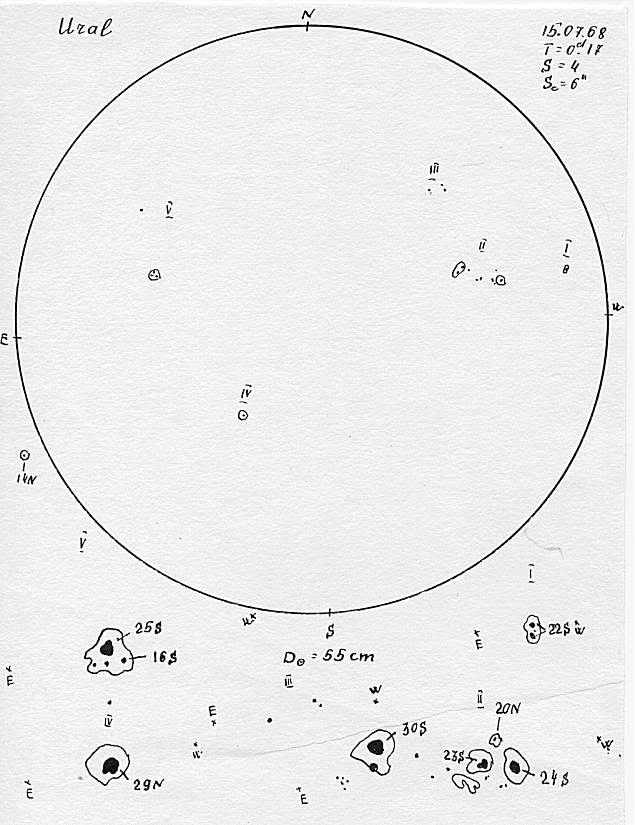 Ural
N
15.07.68
T = 0d.17
S = 4
Sc = 6"
III
V
II
I
W
E
IV
14N
V
I
S
W
25S
16S
D⊙ = 55 cm
22S
W
E
E
III
W
II
20N
E
IV
30S
W
23S
24S
29N
E
E